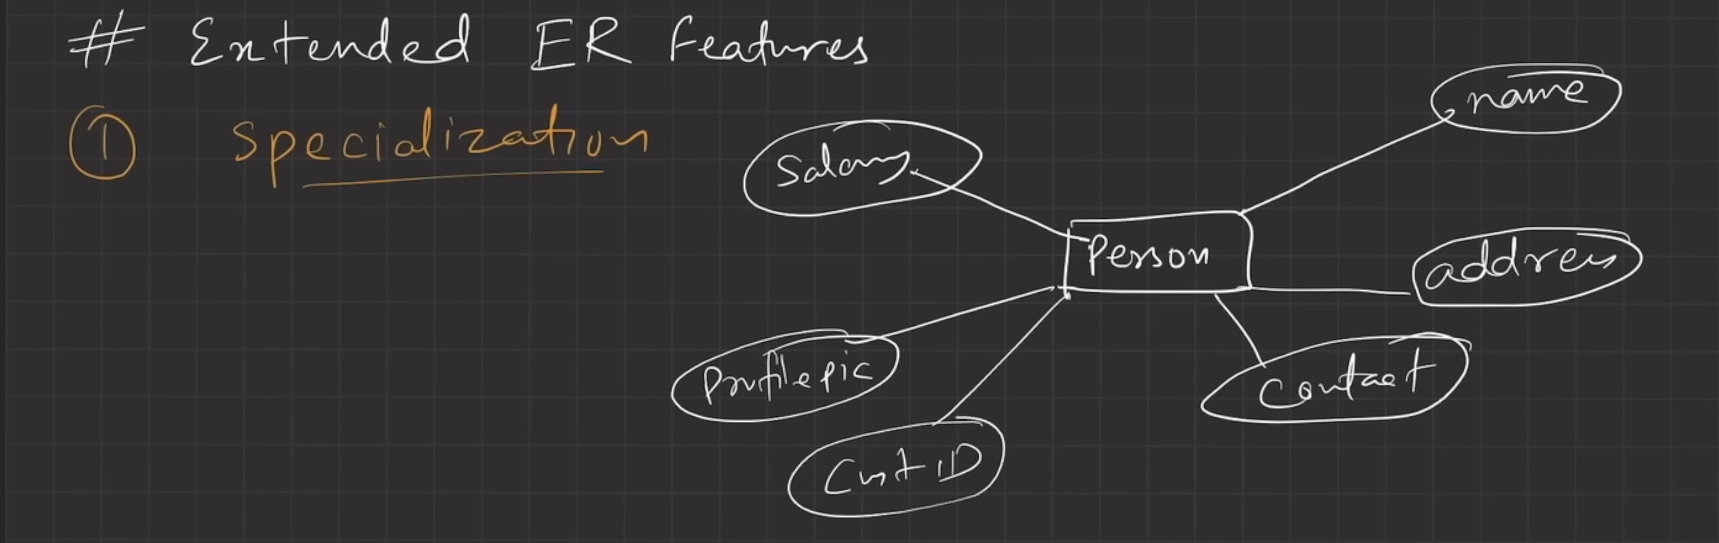 # Extended ER Features
① Specialization
name
Salary
Person
address
Profile pic
Contact
Cust ID